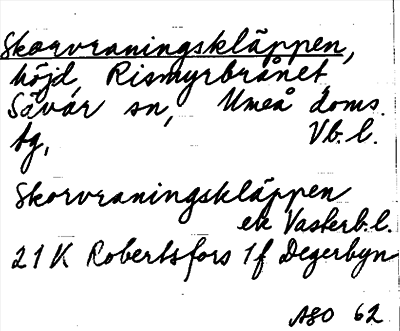 Skorvraningskläppen,
höjd, Rismyrbrånet
Sävar sn, Umeå doms.
tg, Vb. l.
Skorvraningskläppen
ek Vasterb. l.
21 K Robertsfors 1f Degerbyn
ASO 62